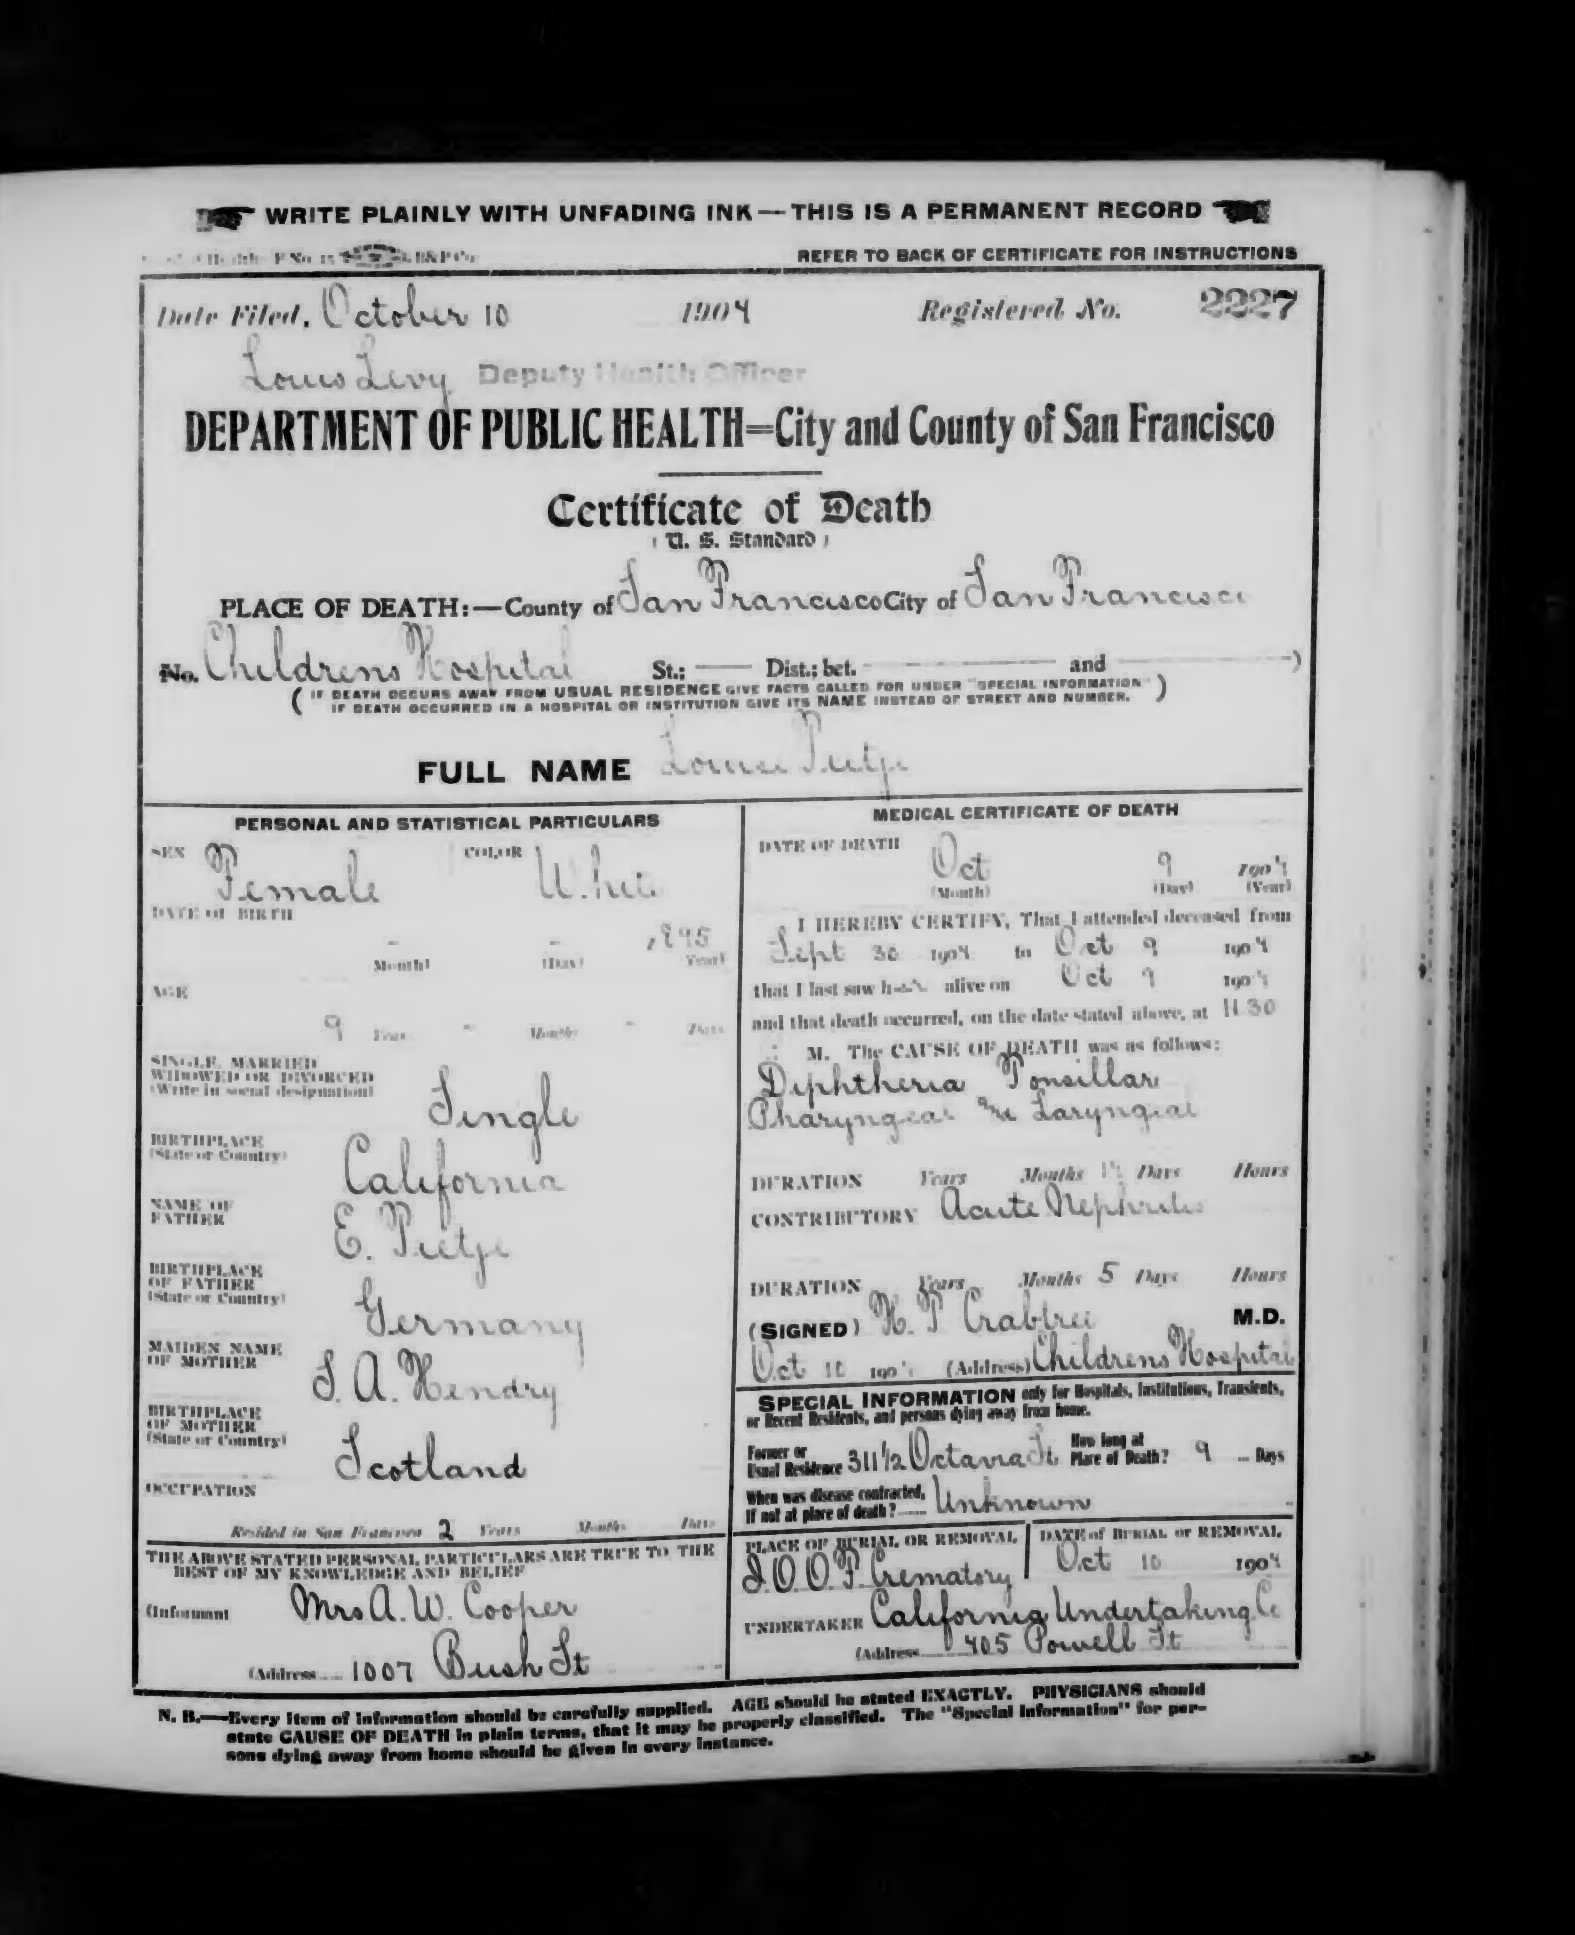 WRITE PLAINLY WITH UNFADING INK — THIS IS A PERMANENT RECORD
REFER TO BACK OF CERTIFICATE FOR INSTRUCTIONS
Date Filed, October 10 1904 Registered No. 2227
Louis Levy Deputy Health Officer
DEPARTMENT OF PUBLIC HEALTH=City and County of San Francisco
Certificate of Death
(U. S. Standard)
PLACE OF DEATH:—County of San Francisco City of San Francisco
No. Childrens Hospital St.; —— Dist.; bet. —— and ——)
( IF DEATH OCCURS AWAY FROM USUAL RESIDENCE GIVE FACTS CALLED FOR UNDER "SPECIAL INFORMATION" )
IF DEATH OCCURRED IN A HOSPITAL OR INSTITUTION GIVE ITS NAME INSTEAD OF STREET AND NUMBER.
FULL NAME Louise
PERSONAL AND STATISTICAL PARTICULARS
SEX Female COLOR White
DATE OF BIRTH
- - 1895
(Month) (Day) (Year)
AGE
9 Years - Months - Days
SINGLE, MARRIED
WIDOWED OR DIVORCED
(Write in social designation)
Single
BIRTHPLACE
(State or Country)
California
NAME OF
FATHER
E.
BIRTHPLACE
OF FATHER
(State or Country)
Germany
MAIDEN NAME
OF MOTHER
S. A. Hendry
BIRTHPLACE
OF MOTHER
(State or Country)
Scotland
OCCUPATION
Resided in San Francisco 2 Years Months Days
THE ABOVE STATED PERSONAL PARTICULARS ARE TRUE TO THE
BEST OF MY KNOWLEDGE AND BELIEF
(Informant Mrs A. W. Cooper
(Address 1007 Bush St
MEDICAL CERTIFICATE OF DEATH
DATE OF DEATH
Oct 9 1904
(Month) (Day) (Year)
I HEREBY CERTIFY, That I attended deceased from
Sept 30 1904 to Oct 9 1904
that I last saw h alive on Oct 9 1904
and that death occurred, on the date stated above, at 11.30
M. The CAUSE OF DEATH was as follows:
Diphtheria Tonsillar
Pharyngeal and Laryngeal
DURATION Years Months Days Hours
CONTRIBUTORY Acute Nephritis
DURATION Years Months 5 Days Hours
(SIGNED) H. P Crabtree M.D.
Oct 10 1904 (Address) Childrens Hospital
SPECIAL INFORMATION only for Hospitals, Institutions, Transients,
or Recent Residents, and persons dying away from home.
Former or
Usual Residence 311 1/2 Octavia St
How long at
Place of Death? 9 Days
When was disease contracted,
If not at place of death? Unknown
PLACE OF BURIAL OR REMOVAL
I.O.O.F. Crematory
DATE of BURIAL or REMOVAL
Oct 10 1904
UNDERTAKER California Undertaking Co
(Address 405 Powell St
N. B.—Every item of information should be carefully supplied. AGE should be stated EXACTLY. PHYSICIANS should
state CAUSE OF DEATH in plain terms, that it may be properly classified. The "Special Information" for per-
sons dying away from home should be given in every instance.